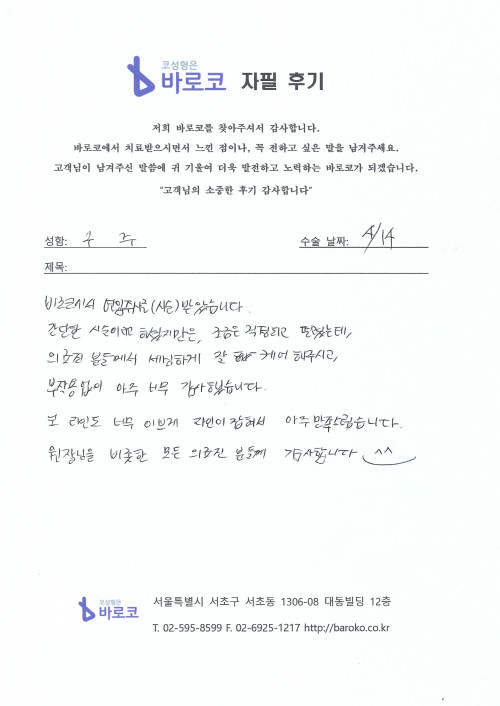 코성형은
바로코 자필 후기
저희 바로코를 찾아주셔서 감사합니다.
바로코에서 치료받으시면서 느낀 점이나, 꼭 전하고 싶은 말을 남겨주세요.
고객님이 남겨주신 말씀에 귀 기울여 더욱 발전하고 노력하는 바로코가 되겠습니다.
"고객님의 소중한 후기 감사합니다"
성함: 구 주 수술 날짜: 4/14
제목:
바로코에서 (시술)받았습니다.
간단한 시술이라고 하셨지만은, 조금은 걱정되고 떨렸는데,
의료진 분들께서 세심하게 잘 케어 해주시고,
부작용없이 아주 너무 감사했습니다.
코 라인도 너무 이쁘게 라인이 잡혀서 아주 만족스럽습니다.
원장님을 비롯한 모든 의료진 분들께 감사합니다 ^^
코성형은
바로코
서울특별시 서초구 서초동 1306-08 대동빌딩 12층
T. 02-595-8599 F. 02-6925-1217 http://baroko.co.kr